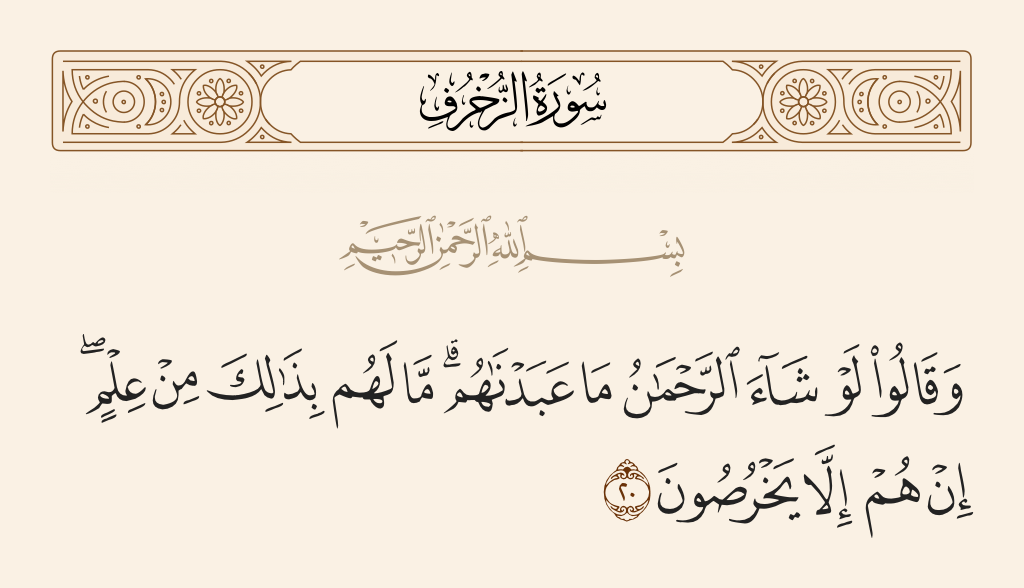 سُورَةُ الزُّخْرُفِ
بِسْمِ ٱللَّهِ ٱلرَّحْمَٰنِ ٱلرَّحِيمِ
وَقَالُوا۟ لَوْ شَآءَ ٱلرَّحْمَـٰنُ مَا عَبَدْنَـٰهُم ۗ مَّا لَهُم بِذَٰلِكَ مِنْ عِلْمٍ ۖ
إِنْ هُمْ إِلَّا يَخْرُصُونَ ٢٠